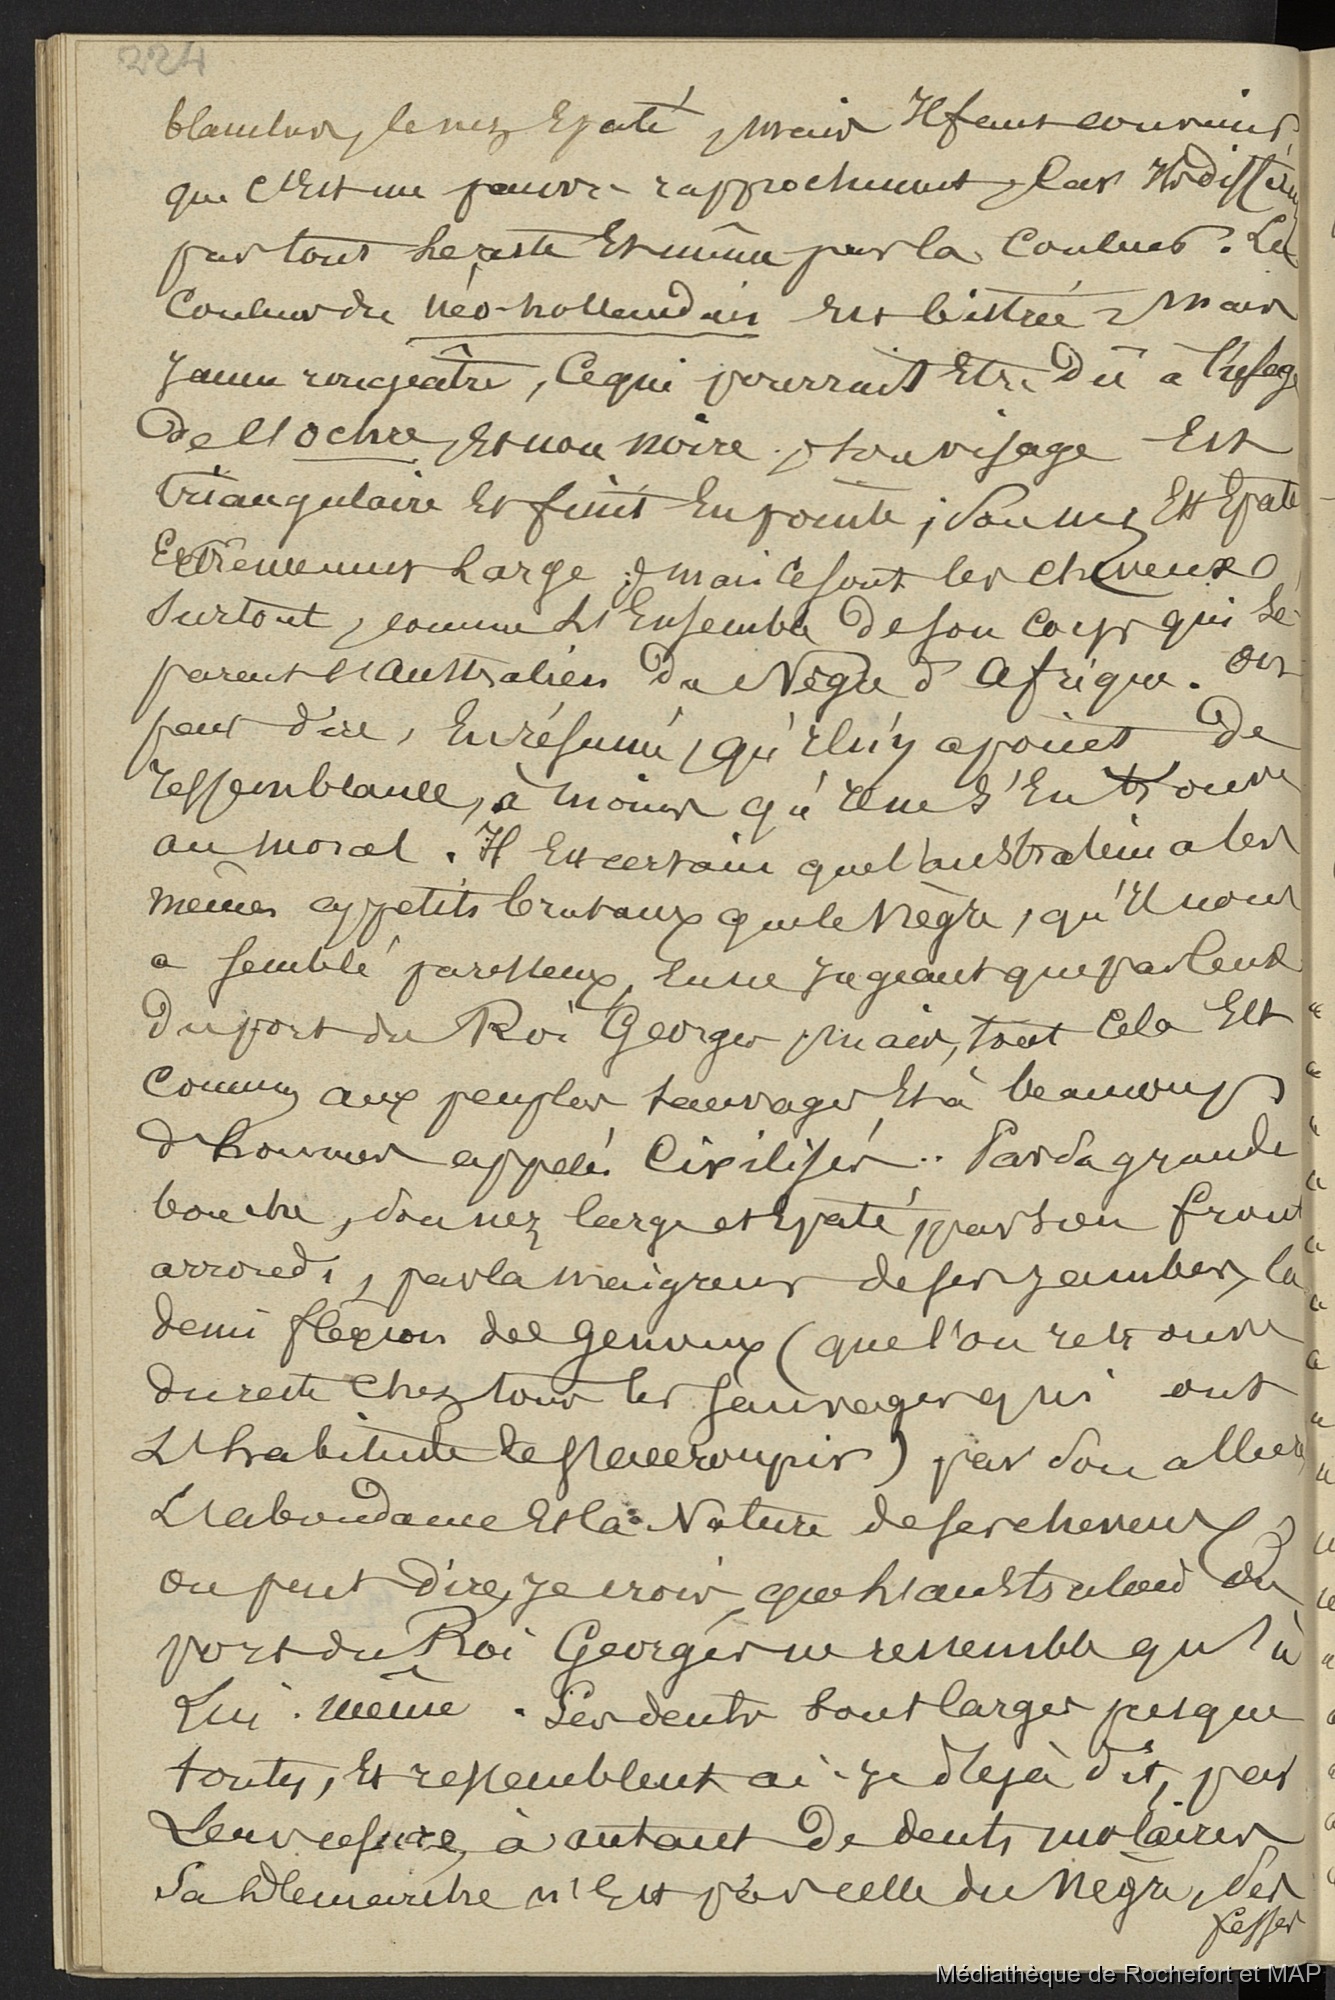 224
blanches, le nez Epaté, mais Il faut convenir
que C'Est un pauvre rapprochement, Car Ils diffèrent
par tout le reste Et même par la Couleur. La
Couleur du néo-hollandais Est bistrée, mais
jaune rougeâtre, Ce qui pourrait Etre Dû à l'usage
De l'ochre, Et non noire, son visage Est
triangulaire Et finit En pointe ; Son nez Est Epaté
Extrêmement Large ; mais ce sont les cheveux
Surtout, comme L'Ensemble De son Corps qui Sé-
parent l'australien Du Nègre d'Afrique. On
peut dire, En résumé, qu'Il n'y a point De
ressemblance, à moins qu'Il ne S'En trouve
au moral. Il Est certain que l'australien a les
mêmes appétits brutaux que le Nègre, qu'Il nous
a semblé paresseux, En ne jugeant que par Ceux
Du port du Roi Georges, mais, tout Cela Est
Commun aux peuples Sauvages Et à beaucoup
d'hommes appelés Civilisés. Par Sa grande
bouche, Son nez large et Epaté, par son front
arrondi, par la maigreur de ses jambes, la
demi flexion des Genoux (que l'on retrouve
du reste Chez tous les Sauvages qui ont
L'habitude de s'accroupir) par Son allure
L'abondance Et la Nature de ses cheveux,
on peut dire, je crois, que L'australien du
port du Roi Georges ne ressemble qu'à
Lui-même. Ses dents Sont larges presque
toutes, Et ressemblent ai-je déjà dit, par
Leur usure, à autant De dents molaires
Sa Démarche n'Est pas celle du Nègre, Ses
fesses
Médiathèque de Rochefort et MAP